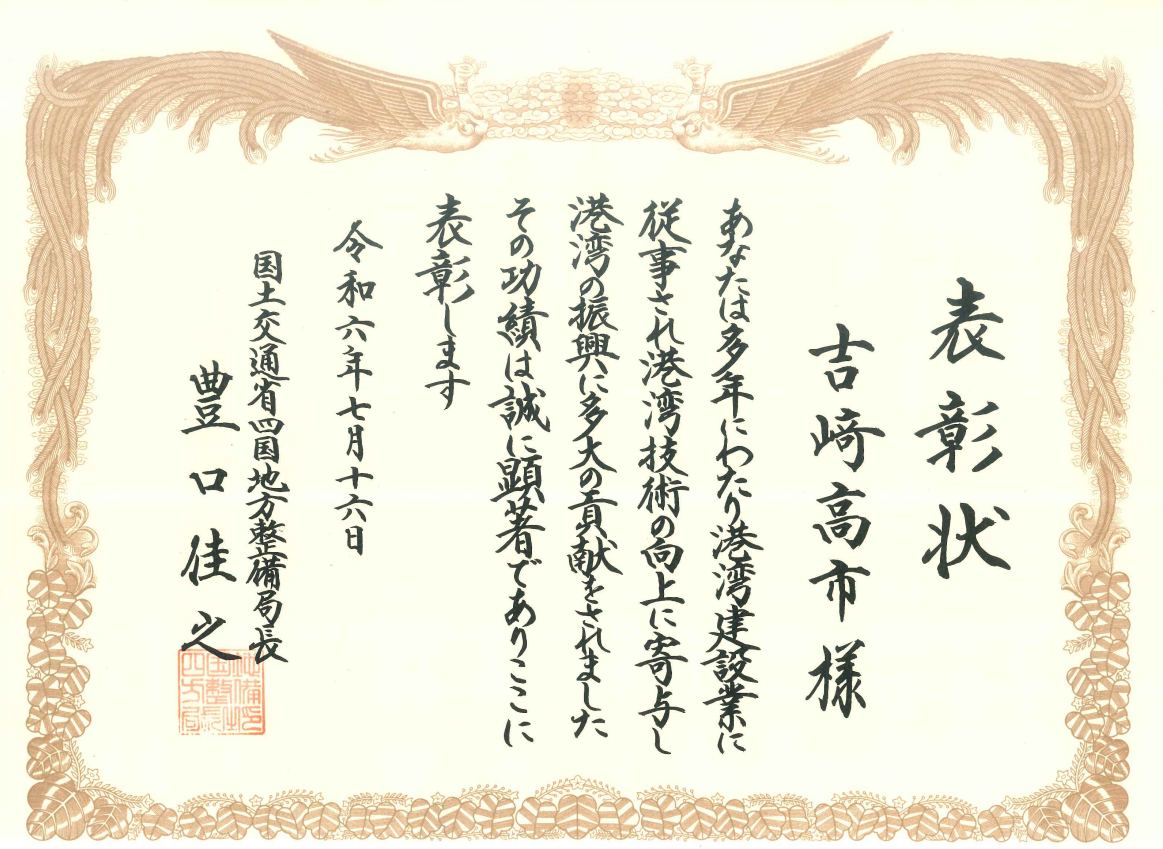 表彰状
吉崎高市様
あなたは多年にわたり港湾建設業に
従事され港湾技術の向上に寄与し
港湾の振興に多大の貢献をされました
その功績は誠に顕著でありここに
表彰します
令和六年七月十六日
国土交通省四国地方整備局長
豊口佳之